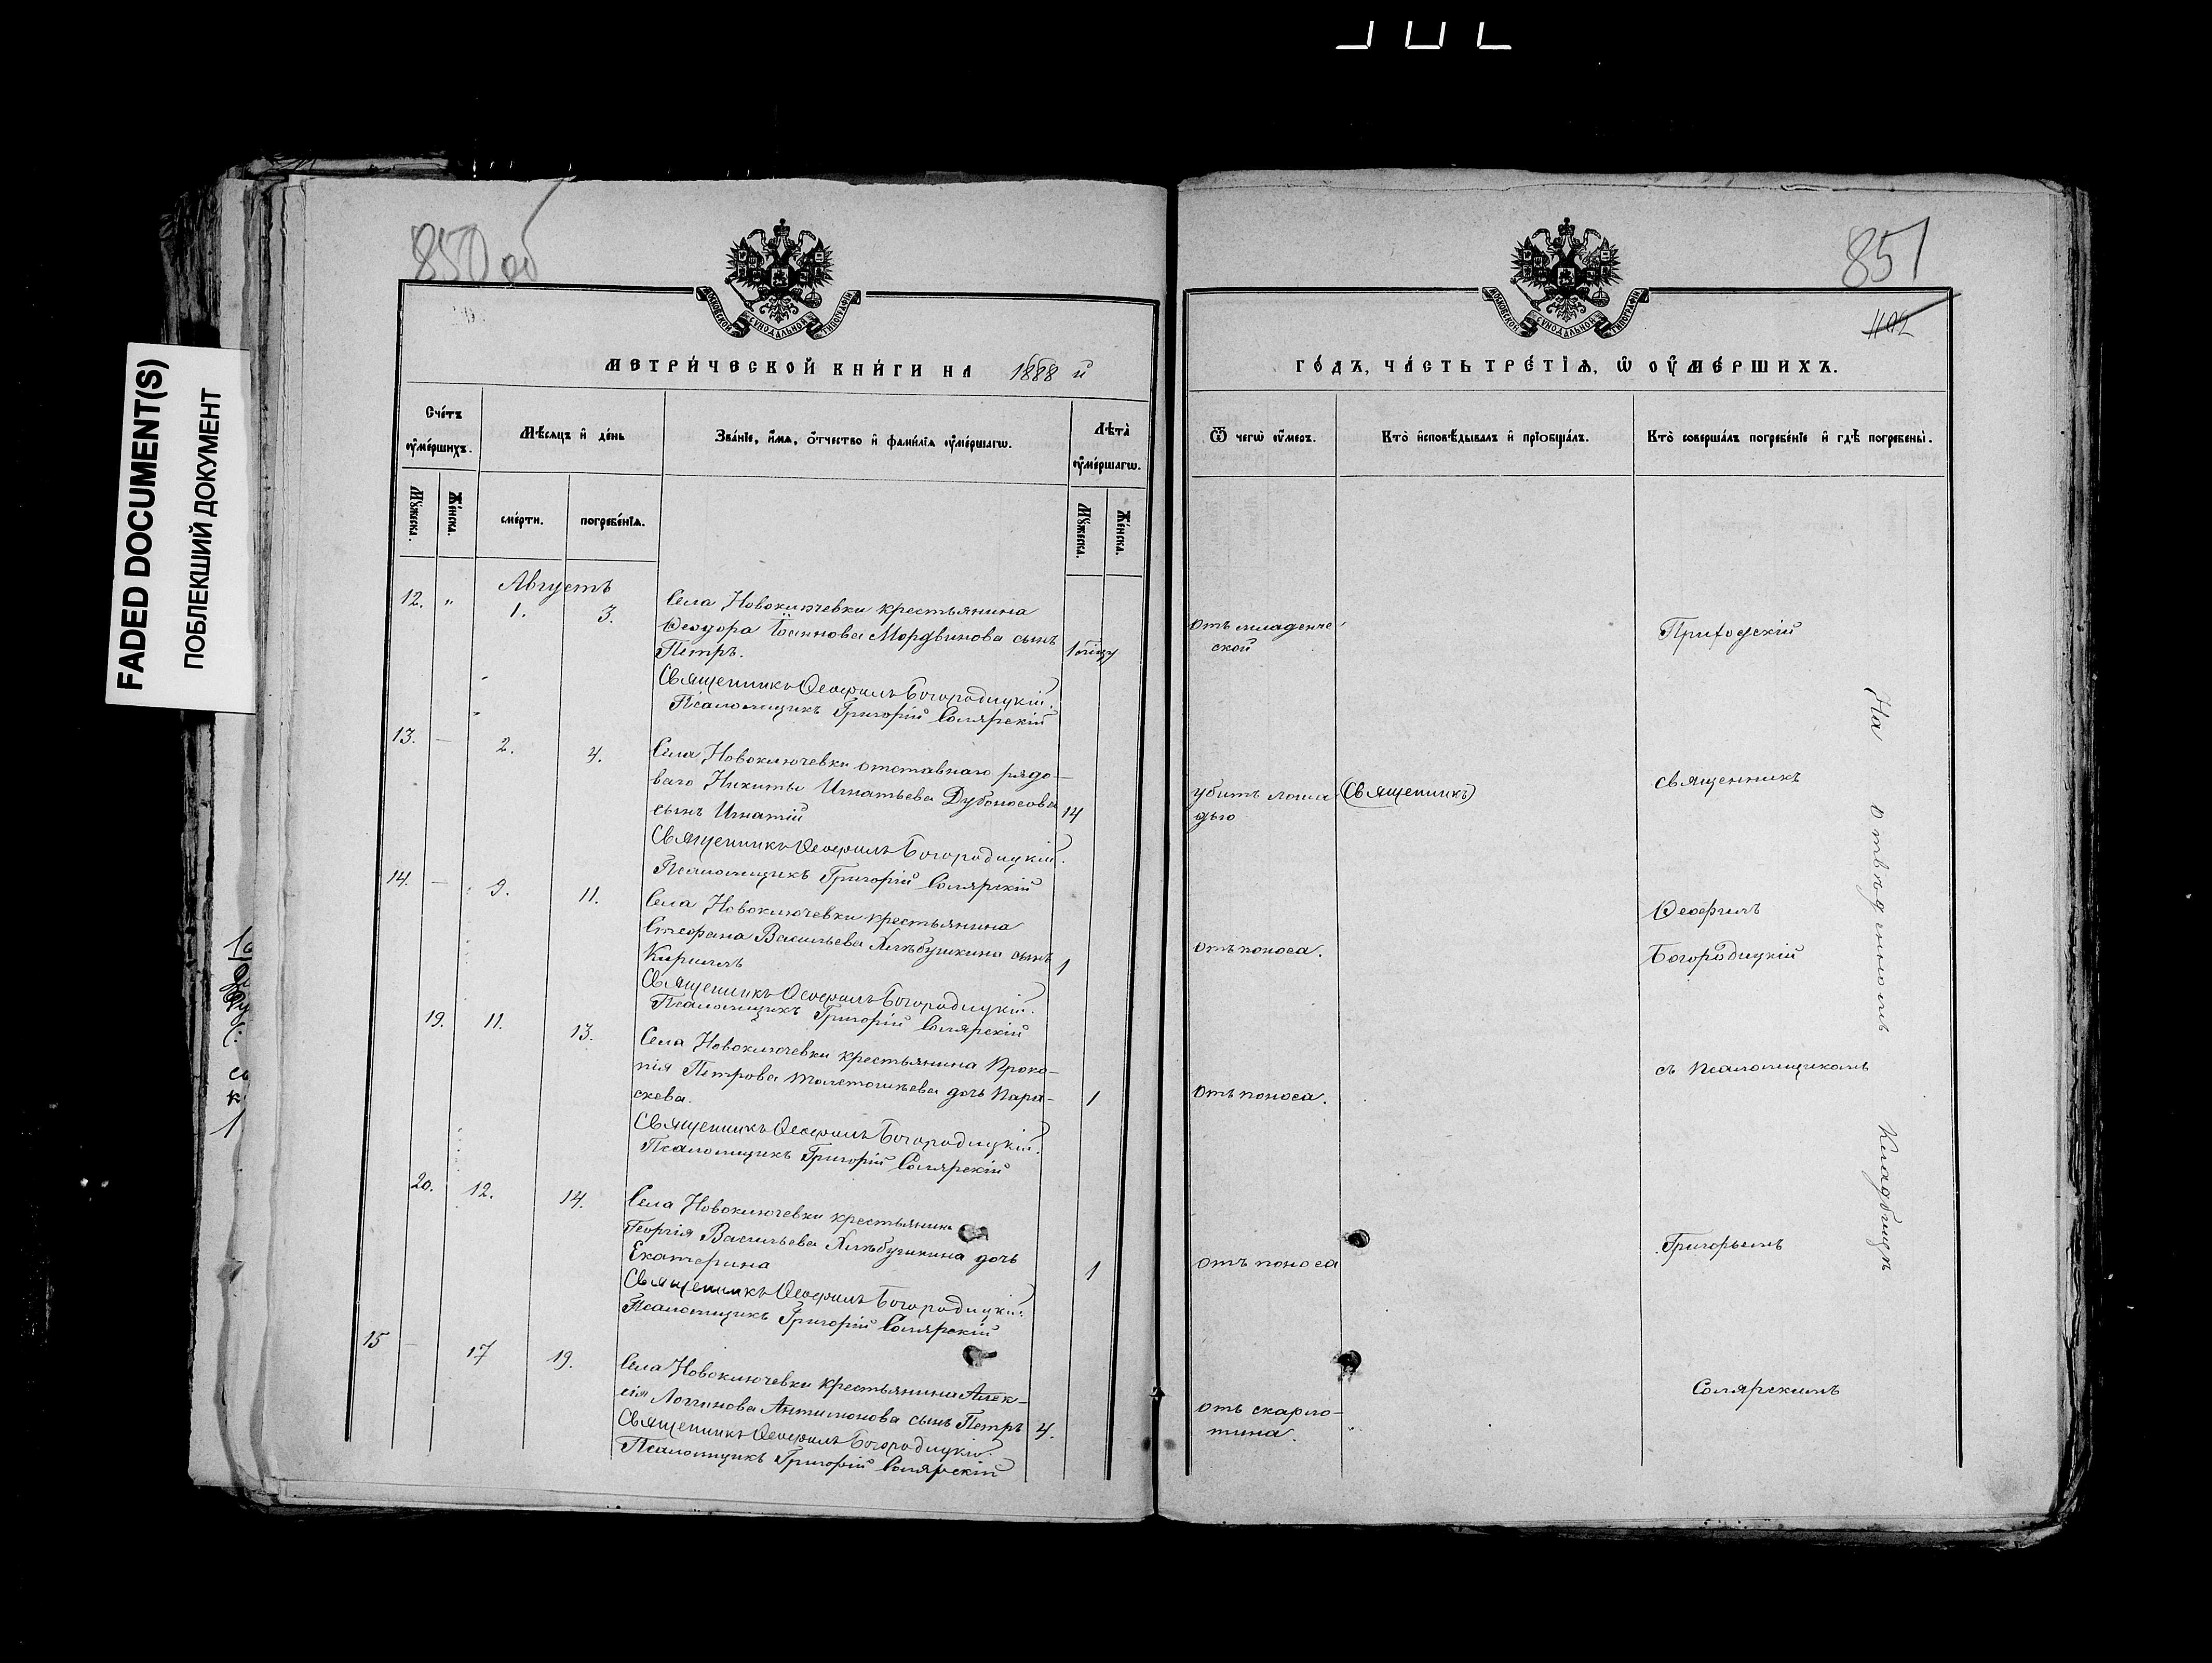 FADED DOCUMENT(S)
ПОБЛЕКШИЙ ДОКУМЕНТ
850 об
МОСКОВСКОЙ СѴНОДАЛЬНОЙ ТИПОГРАФІИ
МЕТРИ́ЧЕСКОЙ КНИ́ГИ НА 1888 й
Сче́тъ ᲂу҆ме́ршихъ.
Мѣ́сяцъ и҆ де́нь
Зва́нїе, и҆́мя, ѻ҆́тчество и҆ фами́лїя ᲂу҆ме́ршагѡ.
Лѣ́та ᲂу҆ме́ршагѡ.
Мꙋ́жеска.
Же́нска.
сме́рти.
погребе́нїя.
Мꙋ́жеска.
Же́нска.
Августъ
12. " 1. 3.
Села Новоключевки крестьянина
Ѳеодора Іоаннова Мордвинова сынъ
Петръ.
Священникъ Ѳеофилъ Богородицкій.
Псаломщикъ Григорій Солярскій
13. — 2. 4.
Села Новоключевки отставнаго рядо-
ваго Никиты Игнатьева Дубоносова
сынъ Игнатій 14
Священникъ Ѳеофилъ Богородицкій.
Псаломщикъ Григорій Солярскій
14. — 9. 11.
Села Новоключевки крестьянина
Стефана Васильева Хлѣбушкина сынъ
Кириллъ 1
Священникъ Ѳеофилъ Богородицкій.
Псаломщикъ Григорій Солярскій
19. 11. 13.
Села Новоключевки крестьянина Проко-
пія Петрова дочь Пара-
скева. 1
Священникъ Ѳеофилъ Богородицкій.
Псаломщикъ Григорій Солярскій
20. 12. 14.
Села Новоключевки крестьянина
Георгія Васильева Хлѣбушкина дочь
Екатерина 1
Священникъ Ѳеофилъ Богородицкій.
Псаломщикъ Григорій Солярскій
15 — 17 19.
Села Новоключевки крестьянина Алек-
сія Логгинова Антимонова сынъ Петръ 4.
Священникъ Ѳеофилъ Богородицкій.
Псаломщикъ Григорій Солярскій
851
МОСКОВСКОЙ СѴНОДАЛЬНОЙ ТИПОГРАФІИ
ГО́ДЪ, ЧА́СТЬ ТРЕ́ТЇѦ, Ѡ҆ ОУ҆МЕ́РШИХЪ.
Ѿ чегѡ̀ ᲂу҆́меръ.
Кто̀ и҆сповѣ́дывалъ и҆ прїѡбща́лъ.
Кто̀ соверша́лъ погребе́нїе и҆ гдѣ̀ погребены̀.
отъ младенче
ской
Приходскій
убитъ лоша
дью
(Священникъ)
священникъ
Ѳеофилъ
отъ поноса.
Богородицкій
съ псаломщикомъ
отъ поноса.
Григорьемъ
отъ поноса
Солярскимъ
отъ скарло-
тина.
На отведенномъ кладбищѣ